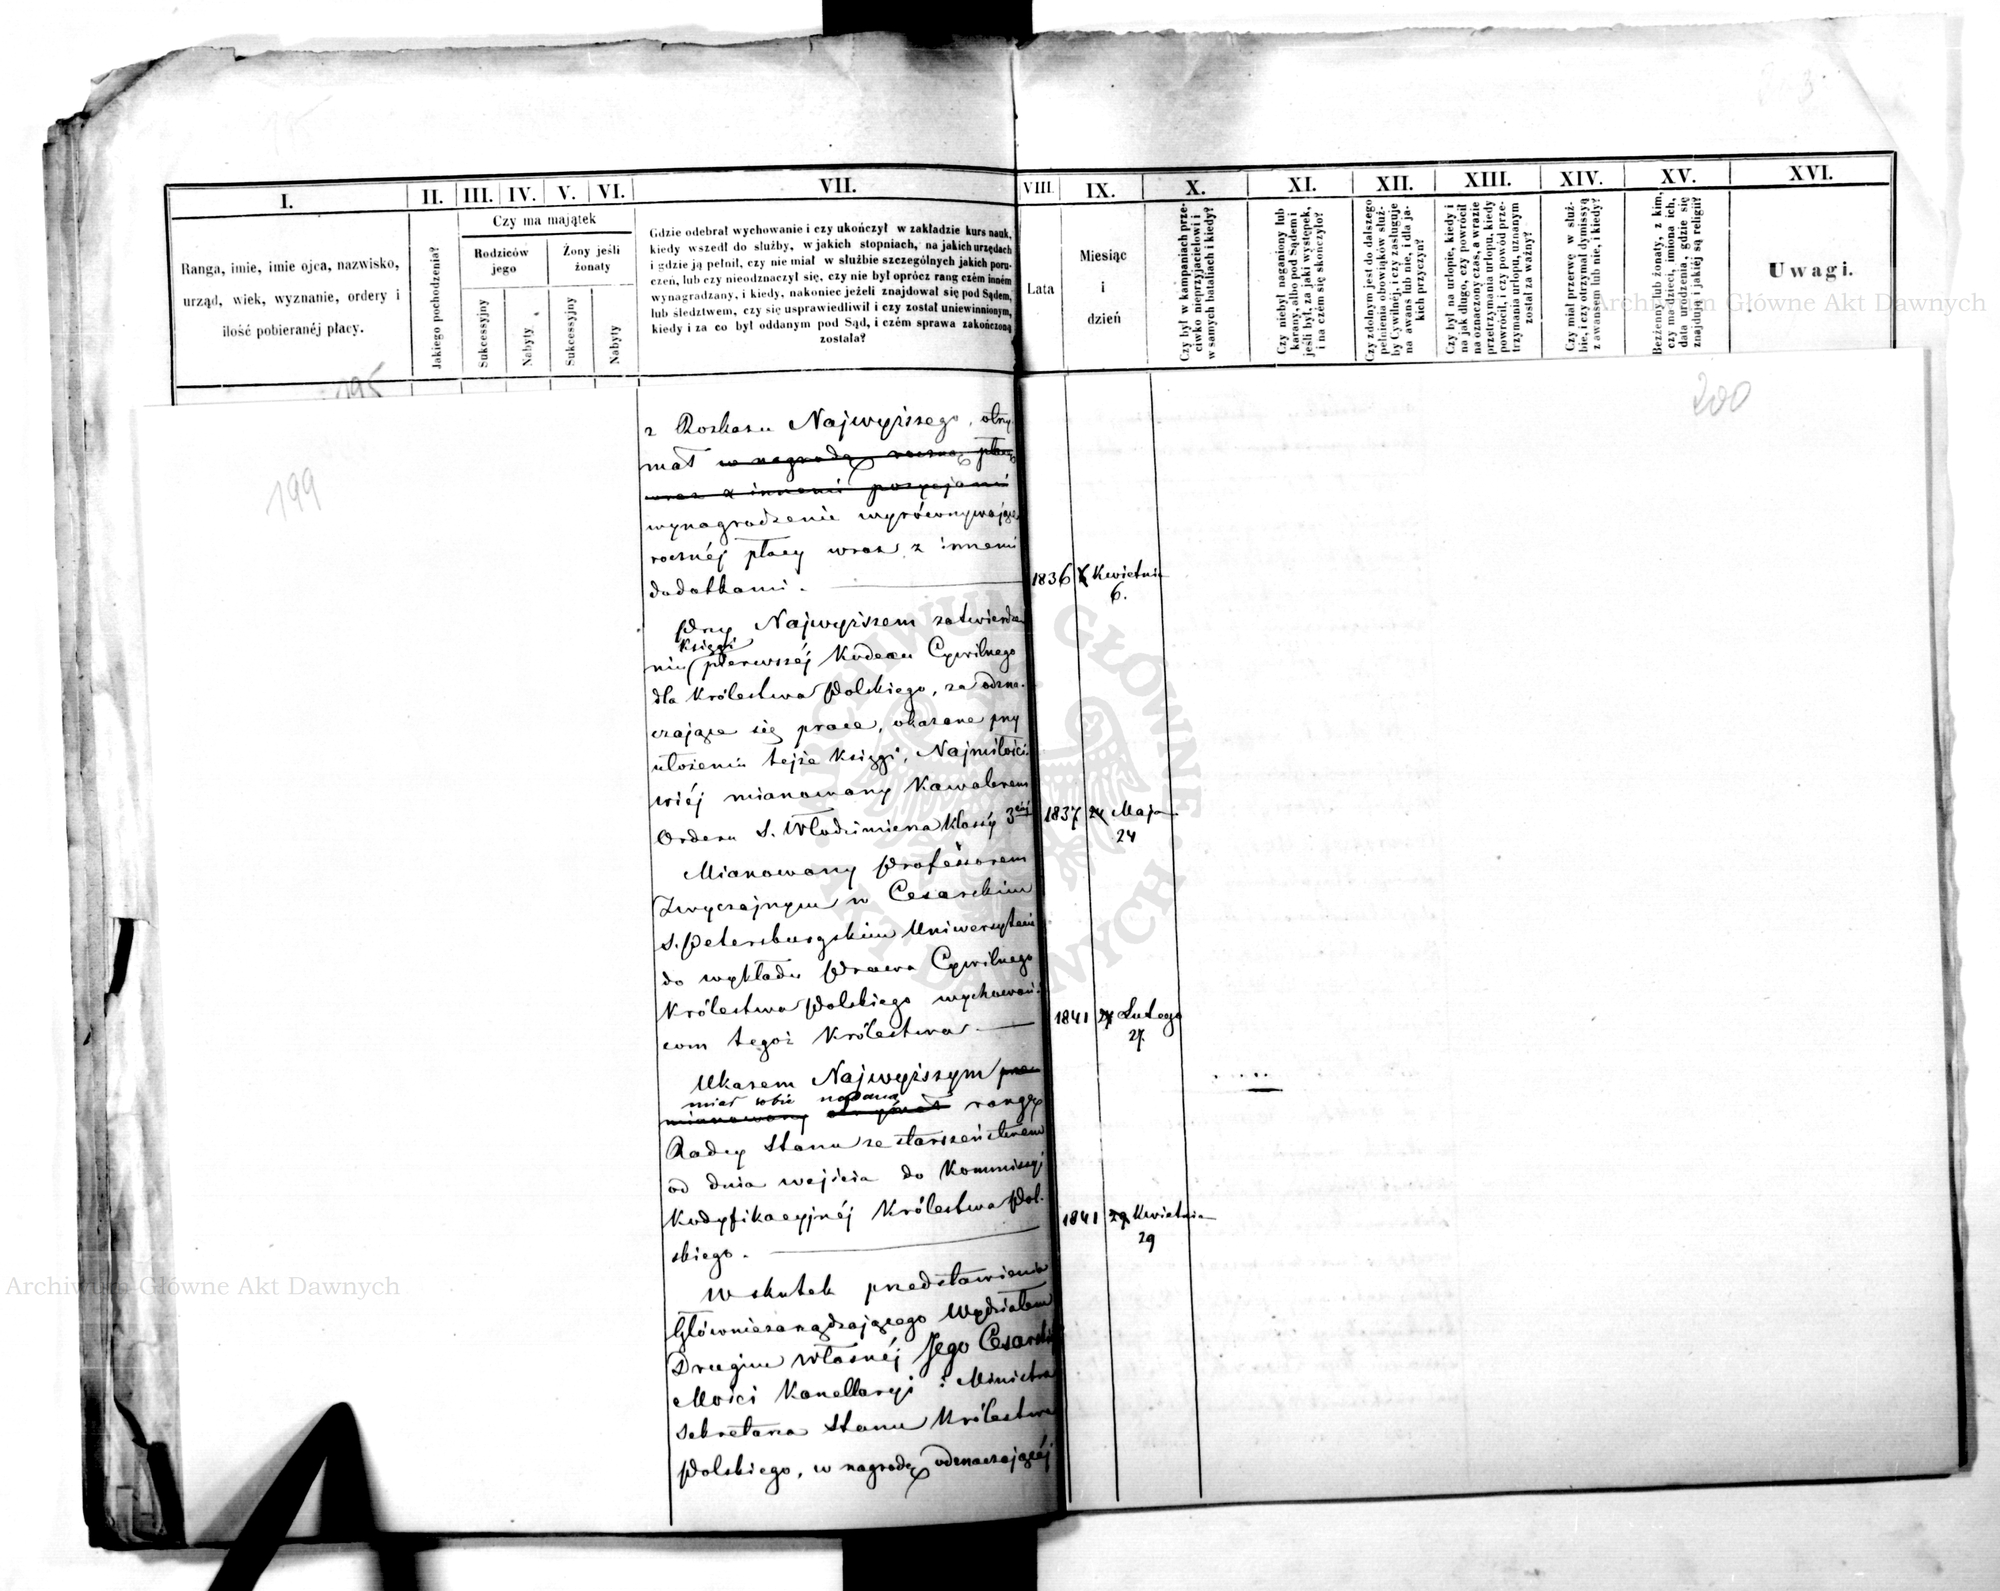 I.
II.
III.
IV.
V.
VI.
VII.
VIII.
IX.
X.
XI.
XII.
XIII.
XIV.
XV.
XVI.
Ranga, imie, imie ojca, nazwisko,
urząd, wiek, wyznanie, ordery i
ilość pobieranéj płacy.
Jakiego pochodzenia?
Czy ma majątek
Rodziców
jego
Żony jeśli
żonaty
Sukcessyjny
Nabyty
Sukcessyjny
Nabyty
Gdzie odebrał wychowanie i czy ukończył w zakładzie kurs nauk,
kiedy wszedł do służby, w jakich stopniach, na jakich urzędach
i gdzie ją pełnił, czy nie miał w służbie szczególnych jakich poru-
czeń, lub czy nieodznaczył się, czy nie był oprócz rang czém inném
wynagradzany, i kiedy, nakoniec jeżeli znajdował się pod Sądem,
lub śledztwem, czy się usprawiedliwił i czy został uniewinnionym,
kiedy i za co był oddanym pod Sąd, i czém sprawa zakończoną
została?
Lata
Miesiąc
i
dzień
Czy był w kampaniach prze-
ciwko nieprzyjacielowi i
w samych bataliach i kiedy?
Czy niebył naganiony lub
karany, albo pod Sądem i
jeśli był, za jaki występek,
i na czém się skończyło?
Czy zdolnym jest do dalszego
pełnienia obowiązków służ-
by Cywilnej, i czy zasługuje
na awans lub nie, i dla ja-
kich przyczyn?
Czy był na urlopie, kiedy i
na jak długo, czy powrócił
na oznaczony czas, a w razie
przetrzymania urlopu, kiedy
powrócił, i czy powód prze-
trzymania urlopu, uznanym
został za ważny?
Czy miał przerwę w służ-
bie, i czy otrzymał dymissyą
z awansem lub nie, i kiedy?
Bezżenny lub żonaty, z kim,
czy ma dzieci, imiona ich,
data urodzenia, gdzie się
znajdują i jakiéj są religii?
Uwagi.
195
199
200
z Rozkazu Najwyższego, otrzy-
mał w nagrodę roczną płacę
wraz z innemi pozycjami
wynagrodzenie wyrównywające
rocznéj płacy wraz z innemi
dodatkami.
1836 Kwietnia
6.
Przy Najwyższem zatwierdze
Księgi
niu pierwszéj Kodexu Cywilnego
dla Królestwa Polskiego, za odzna-
czające się prace, okazane przy
ułożeniu tejże Księgi, Najmiłości-
wiéj mianowany Kawalerem
Orderu S. Włodzimierza klassy 3ciéj
1837 24 Maja
24
Mianowany Professorem
Zwyczajnym w Cesarskim
S. Petersburgskim Uniwersytecie
do wykładu Prawa Cywilnego
Królestwa Polskiego wychowań-
com tegoż Królestwa
1841 27 Lutego
27.
Ukazem Najwyższym
miał sobie nadaną
mianowany otrzymał rangę
Radcy Stanu ze starszeństwem
od dnia wejścia do Kommissyi
Kodyfikacyjnéj Królestwa Pol-
skiego.
1841 29 Kwietnia
29
W skutek przedstawienia
Główniezarządzającego Wydziałem
Drugim własnéj Jego Cesarskiej
Mości Kancellaryi i Ministra
Sekretarza Stanu Królestwa
Polskiego, w nagrodę odznaczającéj
Archiwum Główne Akt Dawnych
Archiwum Główne Akt Dawnych
ARCHIWUM GŁÓWNE
AKT DAWNYCH